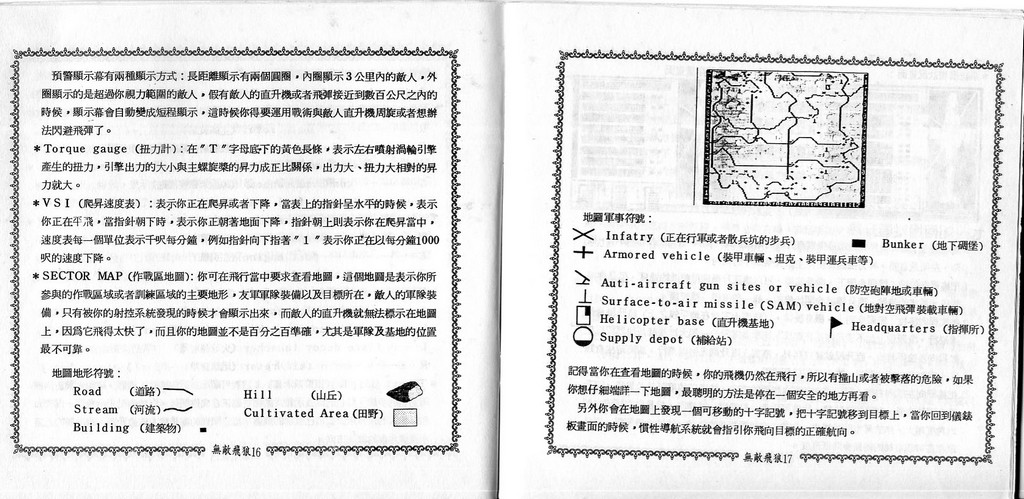 預警顯示幕有兩種顯示方式：長距離顯示有兩個圓圈，內圈顯示3公里內的敵人，外
圈顯示的是超過你視力範圍的敵人，假有敵人的直升機或者飛彈接近到數百公尺之內的
時候，顯示幕會自動變成短程顯示，這時候你得要運用戰術與敵人直升機周旋或者想辦
法閃避飛彈了。
＊Torque gauge (扭力計)：在〞T〞字母底下的黃色長條，表示左右噴射渦輪引擎
產生的扭力，引擎出力的大小與主螺旋槳的昇力成正比關係，出力大、扭力大相對的昇
力就大。
＊VSI (爬昇速度表)：表示你正在爬昇或者下降，當表上的指針呈水平的時候，表示
你正在平飛，當指針朝下時，表示你正朝著地面下降，指針朝上則表示你在爬昇當中，
速度表每一個單位表示千呎每分鐘，例如指針向下指著〞1〞表示你正在以每分鐘1000
呎的速度下降。
＊SECTOR MAP (作戰區地圖)：你可在飛行當中要求查看地圖，這個地圖是表示你所
參與的作戰區域或者訓練區域的主要地形，友軍軍隊裝備以及目標所在，敵人的軍隊裝
備，只有被你的射控系統發現的時候才會顯示出來，而敵人的直升機就無法標示在地圖
上，因爲它飛得太快了，而且你的地圖並不是百分之百準確，尤其是軍隊及基地的位置
最不可靠。
地圖地形符號：
Road (道路)
Hill (山丘)
Stream (河流)
Cultivated Area (田野)
Building (建築物)
無敵飛狼16
地圖軍事符號：
Infatry (正在行軍或者散兵坑的步兵)
Bunker (地下碉堡)
Armored vehicle (裝甲車輛、坦克、裝甲運兵車等)
Auti-aircraft gun sites or vehicle (防空砲陣地或車輛)
Surface-to-air missile (SAM) vehicle (地對空飛彈裝載車輛)
Helicopter base (直升機基地)
Headquarters (指揮所)
Supply depot (補給站)
記得當你在查看地圖的時候，你的飛機仍然在飛行，所以有撞山或者被擊落的危險，如果
你想仔細端詳一下地圖，最聰明的方法是停在一個安全的地方再看。
另外你會在地圖上發現一個可移動的十字記號，把十字記號移到目標上，當你回到儀錶
板畫面的時候，慣性導航系統就會指引你飛向目標的正確航向。
無敵飛狼17